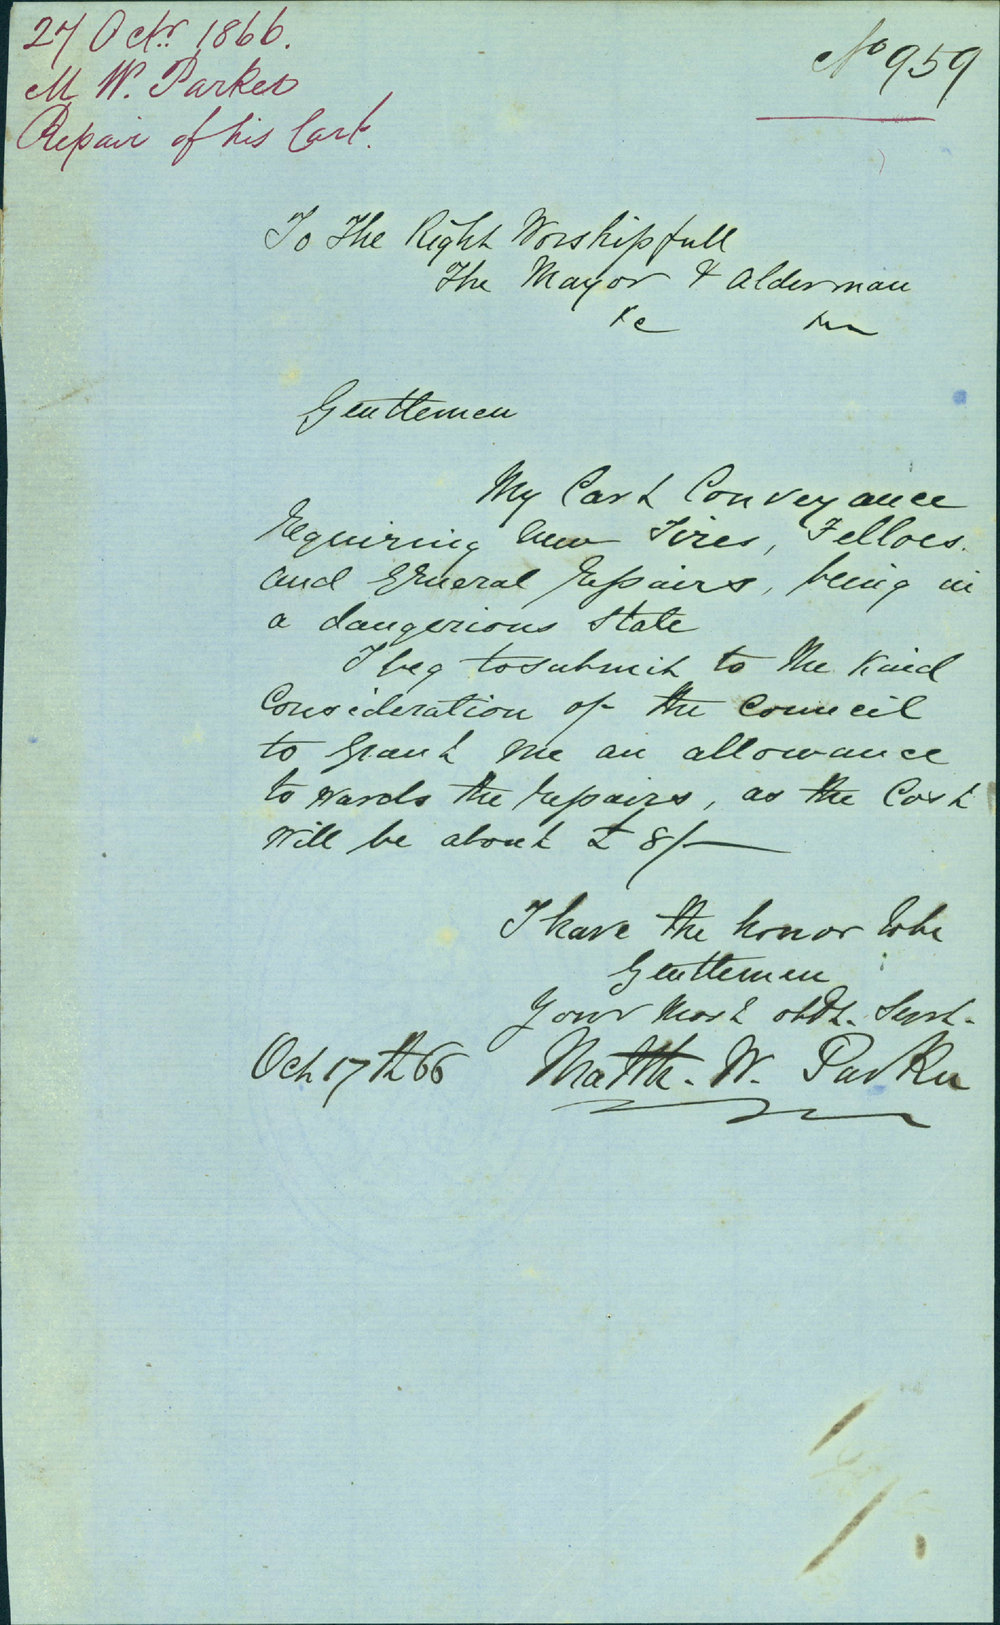 27 Octr. 1866.
M W. Parker
Repair of his Cart.
No 959
To The Right Worshipfull
The Mayor & Alderman
&c
Gentlemen
My Cart Conveyance
requiring new Tires, Felloes.
and general repairs, being in
a dangerious state
I beg to submit to the kind
Consideration of the Council
to grant me an allowance
towards the repairs, as the Cost
will be about £ 8/-
I have the honor to be
Gentlemen
Your Most obdt. Servt.
Oct 17th 66 Matth. W. Parker